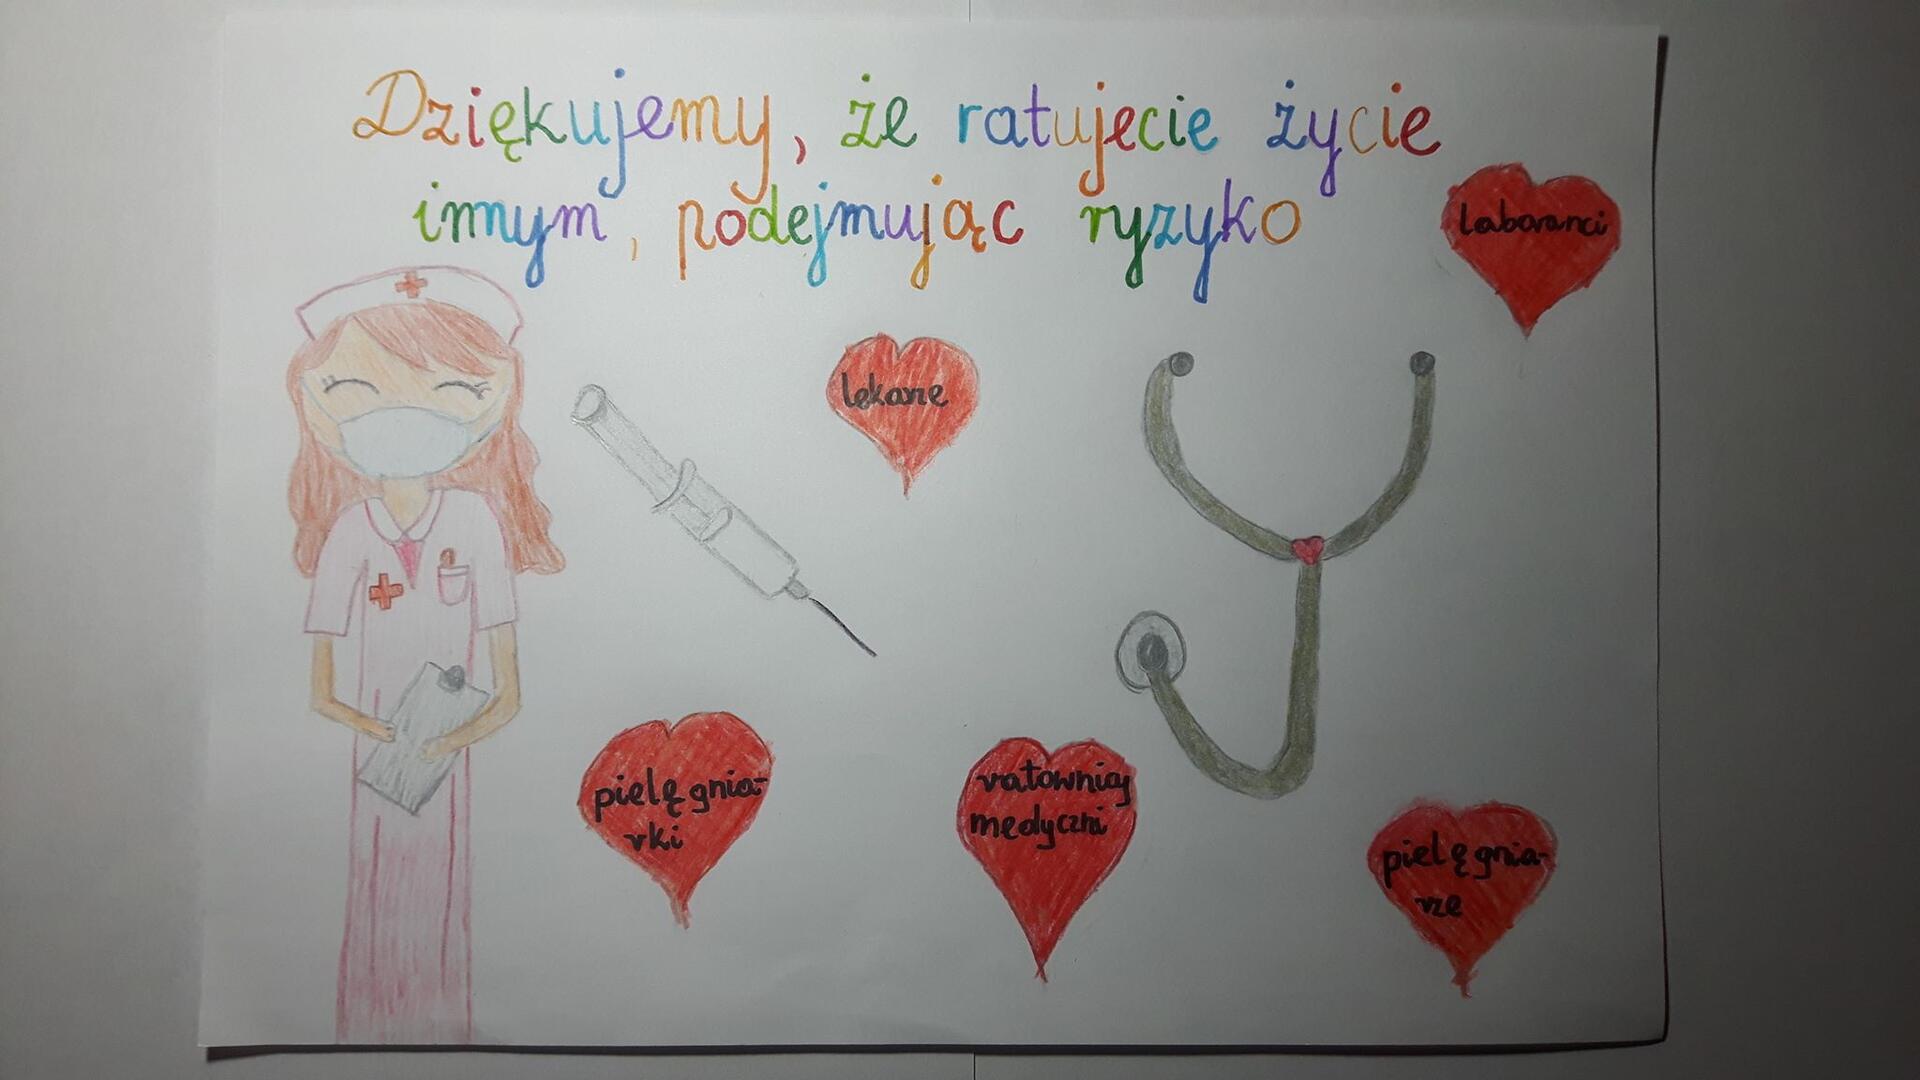 Dziękujemy, że ratujecie życie
innym, podejmując ryzyko
laboranci
lekarze
pielęgnia-
rki
ratownicy
medyczni
pielęgnia-
rze